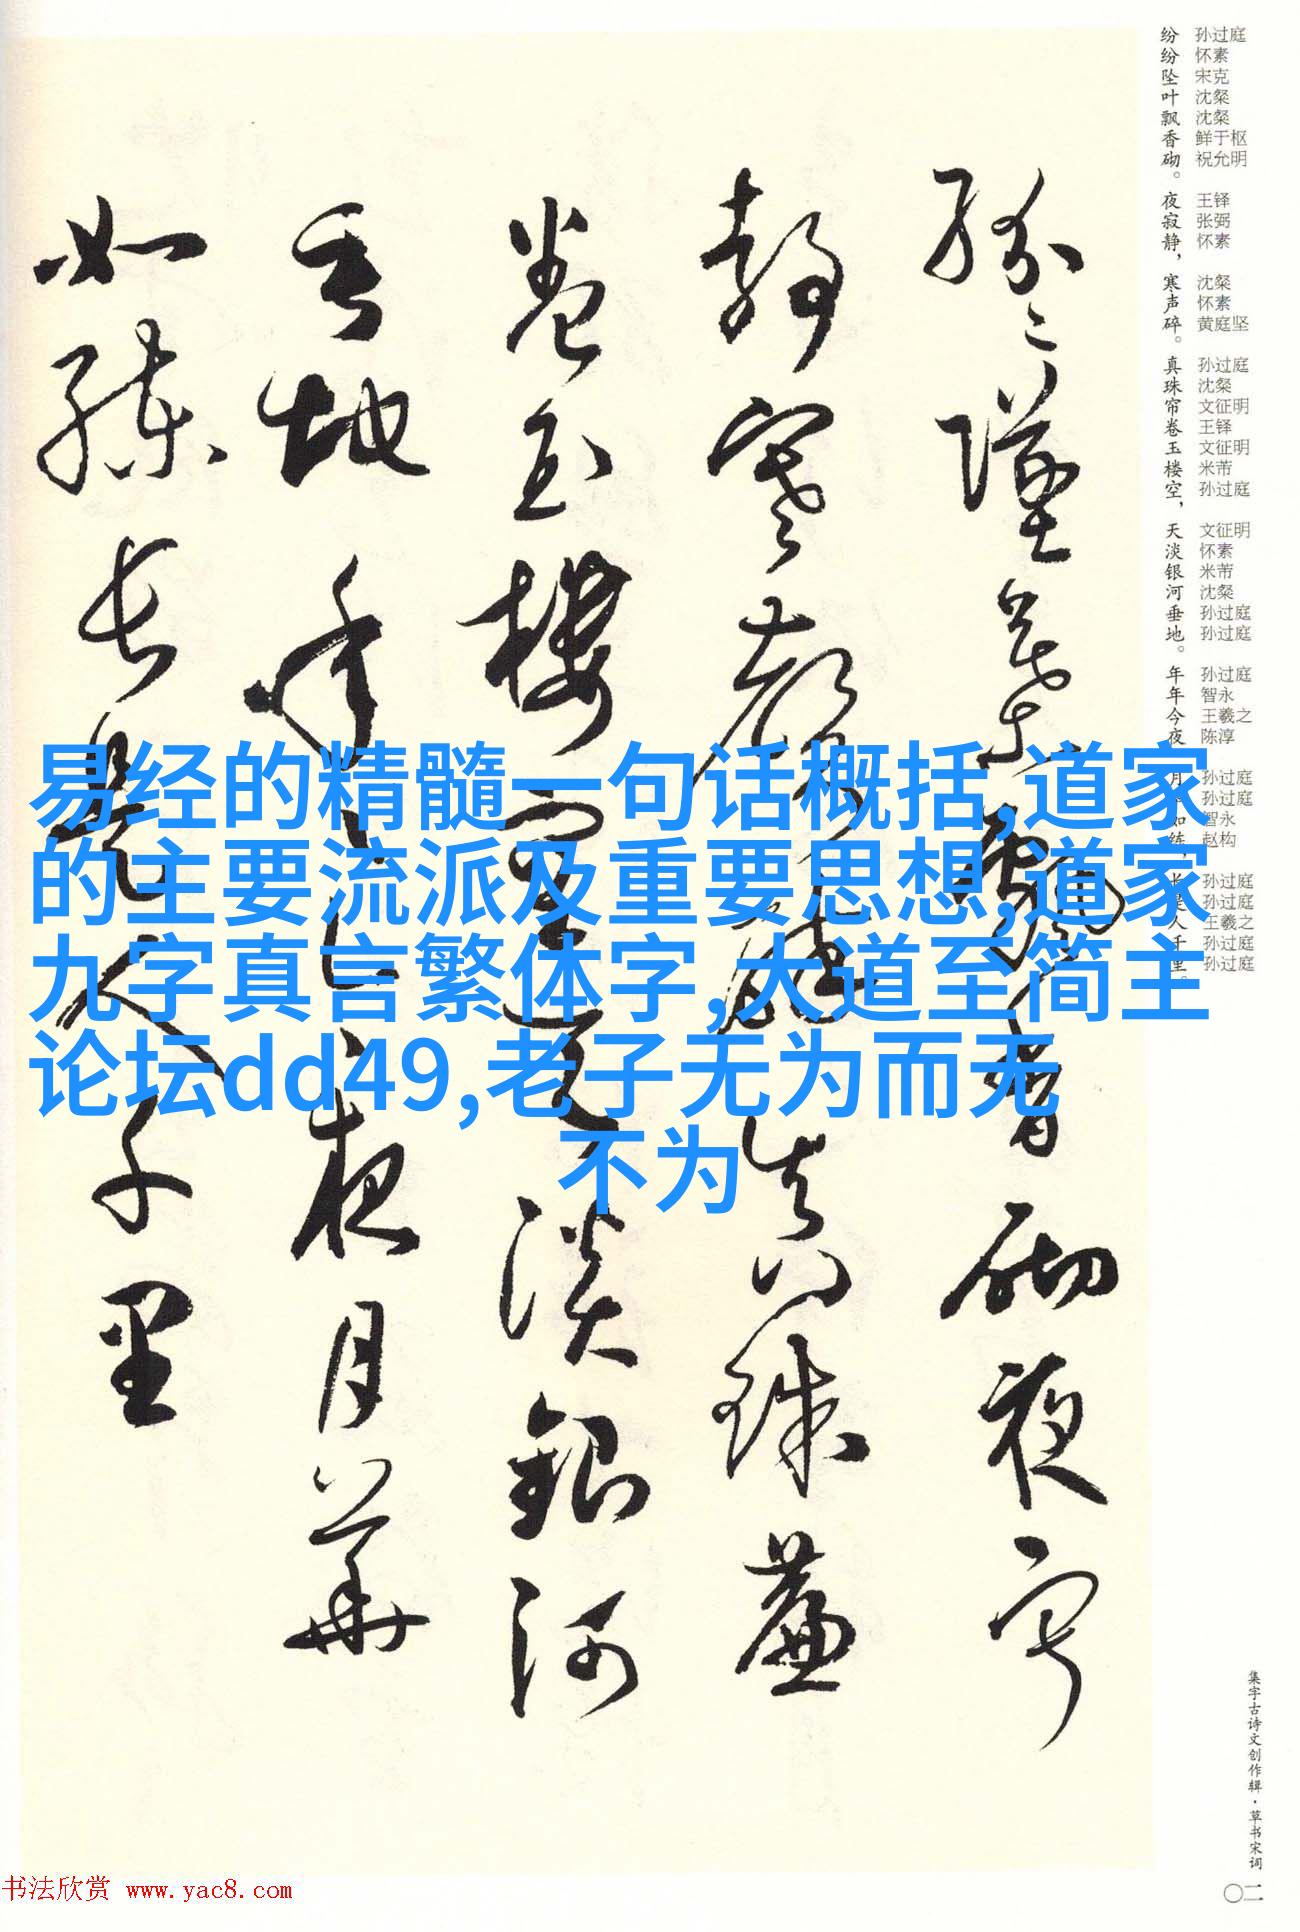 纷纷坠叶飘香砌。
夜寂静，
寒声碎。
真珠帘卷玉楼空，
天淡银河垂地。
年年今夜
孙过庭
怀素
宋克
沈粲
沈粲
鲜于枢
祝允明
王铎
张弼
怀素
沈粲
怀素
黄庭坚
孙过庭
沈粲
文征明
王铎
文征明
米芾
孙过庭
文征明
怀素
米芾
沈粲
孙过庭
孙过庭
孙过庭
智永
王羲之
陈淳
孙过庭
孙过庭
智永
赵构
孙过庭
孙过庭
王羲之
孙过庭
孙过庭
纷〻坠叶飘香砌夜寂
静寒声碎真珠帘
卷玉楼空天淡银河
垂地年〻今夜月华
如练长是人千里
易经的精髓一句话概括,道家
的主要流派及重要思想,道家
九字真言繁体字,大道至简主
论坛dd49,老子无为而无
不为
集字古诗文创作辑·草书宋词
〇二
书法欣赏 www.yac8.com